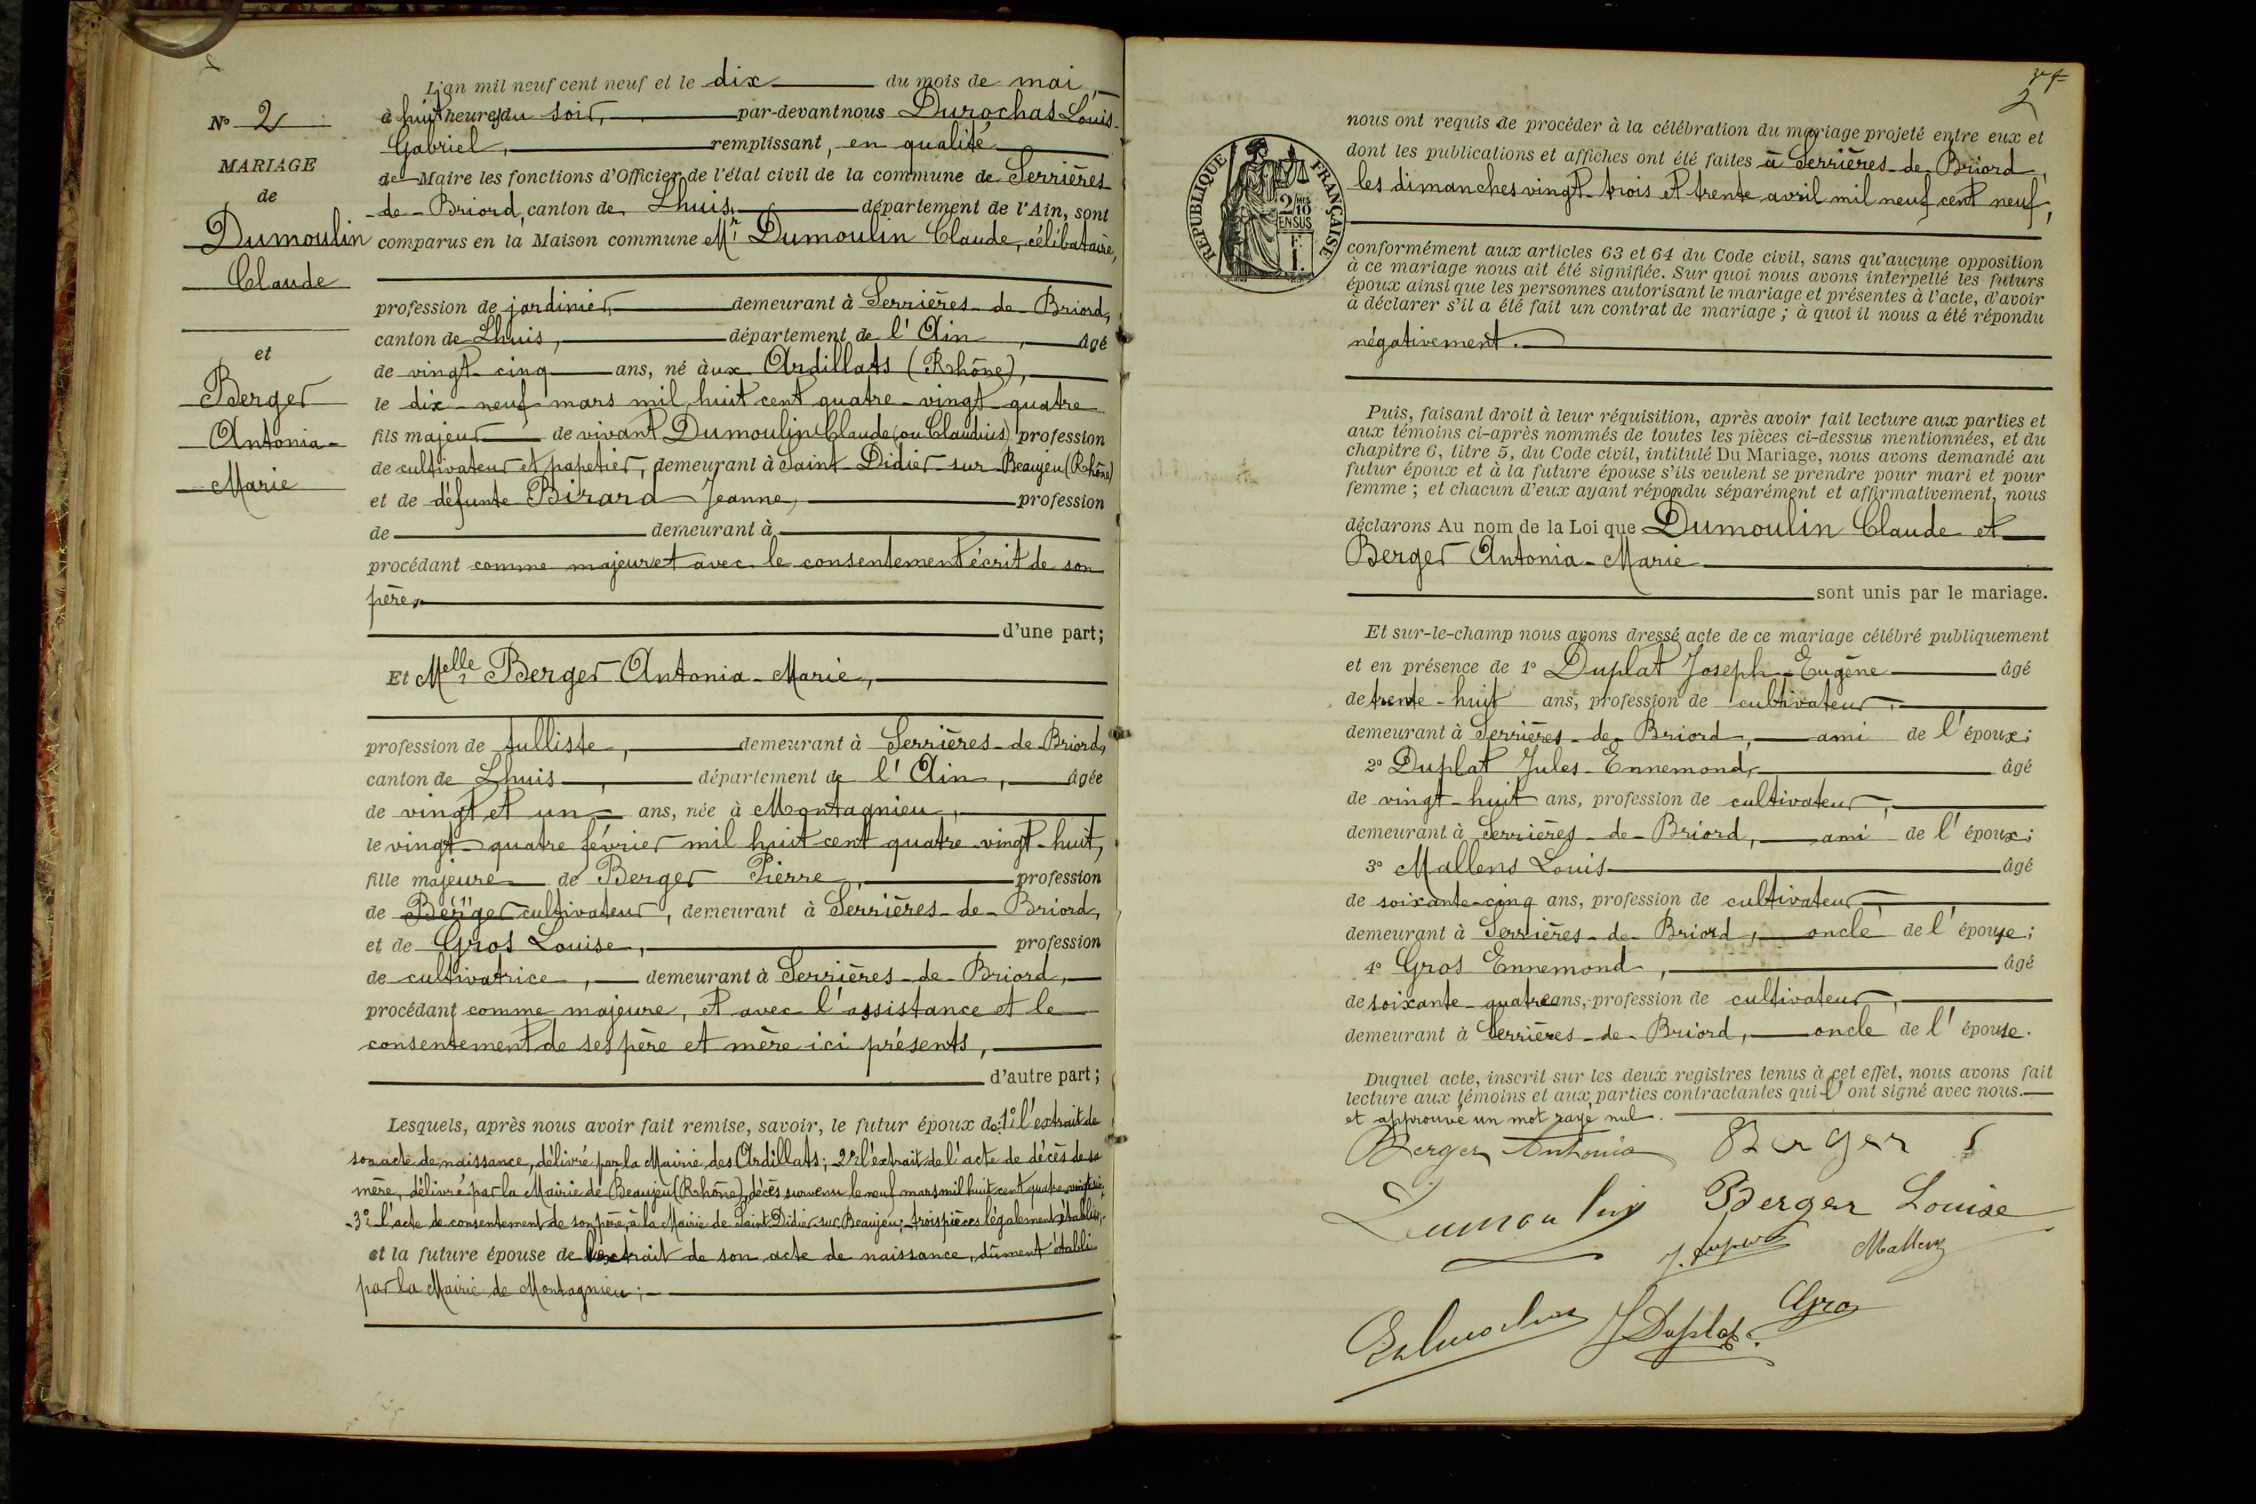 L'an mil neuf cent neuf et le dix du mois de mai,
à huit heures du soir, par-devant nous Durochas Louis-
Gabriel, remplissant, en qualité
de Maire les fonctions d'Officier de l'état civil de la commune de Serrières
-de-Briord, canton de Lhuis, département de l'Ain, sont
comparus en la Maison commune Mr Dumoulin Claude, célibataire,
profession de jardinier, demeurant à Serrières-de-Briord,
canton de Lhuis, département de l'Ain, âgé
de vingt-cinq ans, né aux Ardillats (Rhône),
le dix-neuf mars mil huit cent quatre-vingt-quatre
fils majeur de vivant Dumoulin Claude (ou Claudius) profession
de cultivateur et papetier, demeurant à Saint-Didier-sur-Beaujeu (Rhône)
et de défunte Birard Jeanne, profession
de demeurant à
procédant comme majeur et avec le consentement écrit de son
père,
d'une part;
Et Melle Berger Antonia-Marie,
profession de tulliste, demeurant à Serrières-de-Briord,
canton de Lhuis, département de l'Ain, âgée
de vingt et un ans, née à Montagnieu,
le vingt-quatre février mil huit cent quatre-vingt-huit,
fille majeure de Berger Pierre, profession
de Berger cultivateur, demeurant à Serrières-de-Briord,
et de Gros Louise, profession
de cultivatrice, demeurant à Serrières-de-Briord,
procédant comme majeure, et avec l'assistance et le
consentement de ses père et mère ici présents,
d'autre part;
Lesquels, après nous avoir fait remise, savoir, le futur époux de: 1° l'extrait de
son acte de naissance, délivré par la Mairie des Ardillats; 2° l'extrait de l'acte de décès de sa
mère, délivré par la Mairie de Beaujeu (Rhône), décès survenu le neuf mars mil huit cent quatre-vingt
-3° l'acte de consentement de son père, à la Mairie de Saint-Didier-sur-Beaujeu; trois pièces légalement établies,
et la future épouse de l'extrait de son acte de naissance, dûment établi
par la Mairie de Montagnieu;
No 2
MARIAGE
de
Dumoulin
Claude
et
Berger
Antonia-
Marie
2
RÉPUBLIQUE FRANÇAISE
2/10
EN SUS
nous ont requis de procéder à la célébration du mariage projeté entre eux et
dont les publications et affiches ont été faites à Serrières-de-Briord,
les dimanches vingt-trois et trente avril mil neuf cent neuf,
conformément aux articles 63 et 64 du Code civil, sans qu'aucune opposition
à ce mariage nous ait été signifiée. Sur quoi nous avons interpellé les futurs
époux ainsi que les personnes autorisant le mariage et présentes à l'acte, d'avoir
à déclarer s'il a été fait un contrat de mariage; à quoi il nous a été répondu
négativement.
Puis, faisant droit à leur réquisition, après avoir fait lecture aux parties et
aux témoins ci-après nommés de toutes les pièces ci-dessus mentionnées, et du
chapitre 6, titre 5, du Code civil, intitulé Du Mariage, nous avons demandé au
futur époux et à la future épouse s'ils veulent se prendre pour mari et pour
femme; et chacun d'eux ayant répondu séparément et affirmativement, nous
déclarons Au nom de la Loi que Dumoulin Claude et
Berger Antonia-Marie
sont unis par le mariage.
Et sur-le-champ nous avons dressé acte de ce mariage célébré publiquement
et en présence de 1° Duplat Joseph-Eugène âgé
de trente-huit ans, profession de cultivateur,
demeurant à Serrières-de-Briord, ami de l'époux;
2° Duplat Jules-Ennemond, âgé
de vingt-huit ans, profession de cultivateur,
demeurant à Serrières-de-Briord, ami de l'époux;
3° Mallens Louis âgé
de soixante-cinq ans, profession de cultivateur,
demeurant à Serrières-de-Briord, oncle de l'épouse;
4° Gros Ennemond, âgé
de soixante-quatre ans, profession de cultivateur,
demeurant à Serrières-de-Briord, oncle de l'épouse.
Duquel acte, inscrit sur les deux registres tenus à cet effet, nous avons fait
lecture aux témoins et aux parties contractantes qui l'ont signé avec nous.
et approuvé un mot rayé nul.
Berger Antonia Berger
Dumoulin Berger Louise
Mallens
J Duplat. Gros